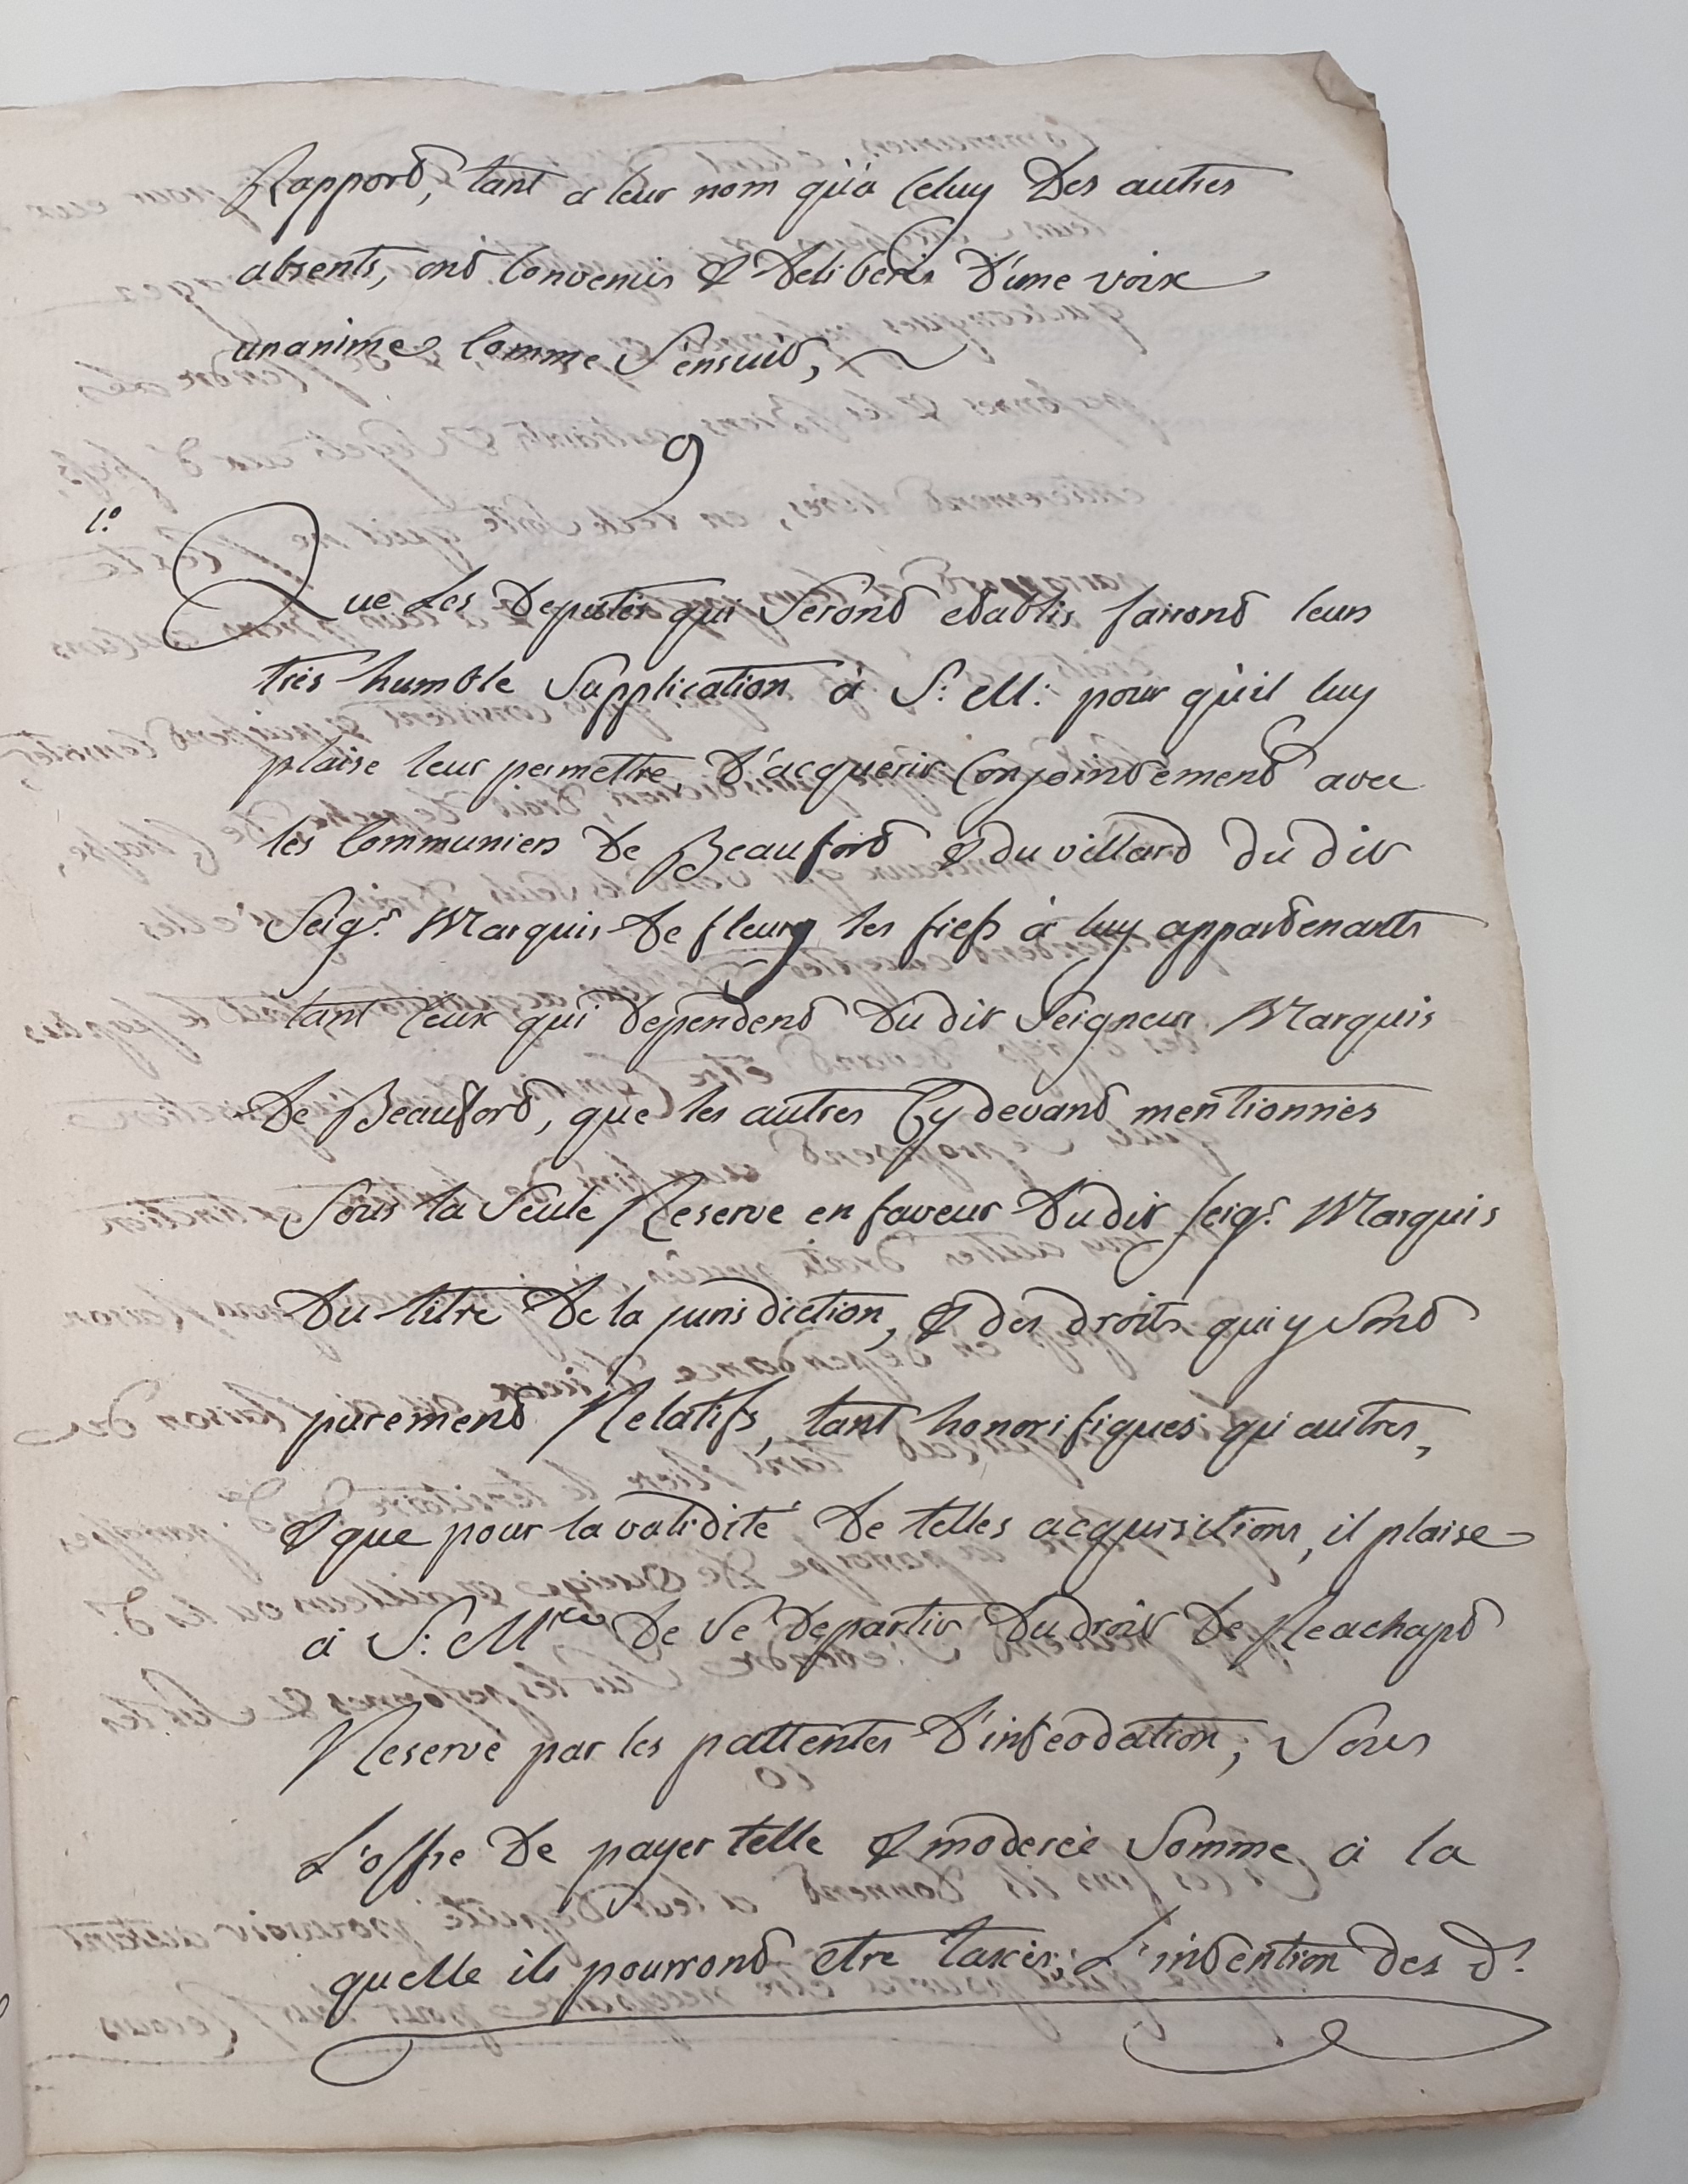 Rapport, tant a leur nom qu'à Celuy Des autres
absents, ont Convenus & Deliberés D'une voix
unanime Comme S'ensuit,
9
1.°
Que Les Deputés qui Seront etablis fairont leurs
très humble Supplication à S: M: pour qu'il luy
plaise leur permettre D'acquerir Conjointement avec
les Communiers De Beaufort & du villard du dit
Seig.r Marquis De fleury les fiefs à luy appartenants
tant Ceux qui Dependent Du dit Seigneur Marquis
De Beaufort, que les autres Cy devant mentionnés
Sous la Seule Reserve en faveur Du dit Seig.r Marquis
Du titre De la jurisdiction, & des droits qui y Sont
purement Relatifs, tant honorifiques qu'autres,
& que pour la validité De telles acquisitions, il plaise
à S: M.tée De Se Departir Du droit De Reachapt
Reservé par les pattentes D'infeodation, Sous
L'offre De payer telle & moderée Somme à la
quelle ils pourront etre taxés; L'intention des d.s